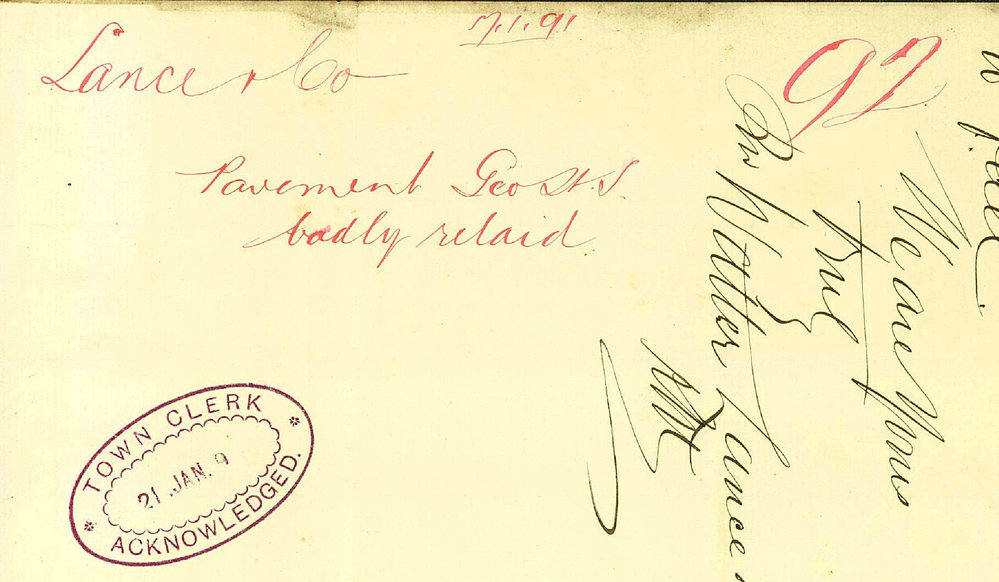 17.1.91
Lance & Co
92
Pavement Geo St. S.
badly relaid.
TOWN CLERK
21 JAN. 9
ACKNOWLEDGED.
We are Yours
True
Pro Walter Lance